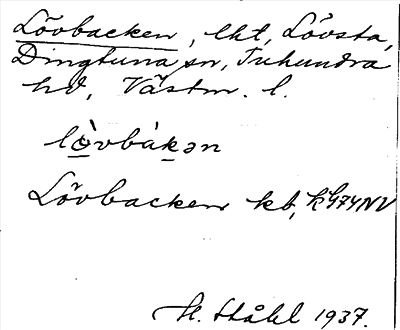 Lövbacken, lht, Lövsta,
Dingtuna sn, Tuhundra
hd, Västm. l.
lö̀vbàkən
Lövbacken kb, kG74NV
H. Ståhl 1937.